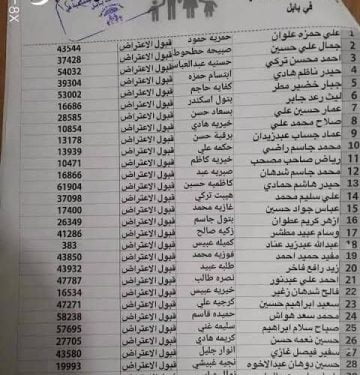 في بابل
1 علي حمزه علوان حمزيه حمود قبول الاعتراض 43544
2 جمال علي حسين صبيحه حطحوط قبول الاعتراض 37428
3 احمد محسن تركي حسنيه عبدالعباس قبول الاعتراض 54032
4 حيدر ناظم هادي ابتسام حمزه قبول الاعتراض 39304
5 جبار خضير مطر كفايه حاجم قبول الاعتراض 53002
6 ليث رعد جابر بتول اسكندر قبول الاعتراض 16686
7 عمار حسين علي بسعاد حسن قبول الاعتراض 28585
8 صلاح محمد علي خيريه هادي قبول الاعتراض 10854
9 عماد جساب عبدزيدان برقية حسن قبول الاعتراض 13178
10 محمد جاسم راضي حكمه علي قبول الاعتراض 13939
11 رياض صاحب مصحب خيريه كاظم قبول الاعتراض 10471
12 محمد جاسم شدهان صبريه عبد قبول الاعتراض 16866
13 حيدر هاشم حمادي كاظميه حسين قبول الاعتراض 61904
14 علي سليم محمد هيبت تركي قبول الاعتراض 37098
15 عباس جواد حسين غازيه محمد قبول الاعتراض 17400
16 ازهر كريم عطوان بتول جاسم قبول الاعتراض 26349
17 وسام عبيد مطشر زكيه صالح قبول الاعتراض 41286
18 عبدالله عبدزيد عناد كميله عبيس قبول الاعتراض 383
19 مفيد حميد احمد فوزيه محمد قبول الاعتراض 43850
20 زيد رافع فاخر طلبه عبيد قبول الاعتراض 43932
21 احمد علي عبدنور نصره طالب قبول الاعتراض 47787
22 فالح شدهان زغير خيريه عبيس قبول الاعتراض 16534
23 سعيد ابراهيم حسين كرجيه علي قبول الاعتراض 47271
24 محمد سعد هواش حميده قاسم قبول الاعتراض 58238
25 صباح سلام ابراهيم سليمه غني قبول الاعتراض 57695
26 حسين نعمه حسن كريمه هادي قبول الاعتراض 27705
27 سفير فيصل غازي انوار جليل قبول الاعتراض 43580
28 حسين ذوهان عبدالاخوه نجيه غبيشي قبول الاعتراض 19993